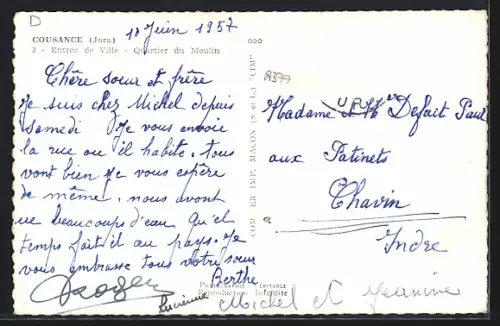 D
18 Juin 1957
COUSANCE (Jura)
2 - Entrée de Ville - Quartier du Moulin
Chère soeur et frère
Je suis chez Michel depuis
samedi Je vous envoie
la rue ou il habite. tous
vont bien Je vous espère
de même. nous avont
ue beaucoups d'eau Qu'el
temps fait il au pays. Je
vous embrasse tous votre sœur
Berthe
Roger
Lucienne
Michel et Jeanine
Reproduction Interdite
COMBIER IMP. MACON (S.-et-L.) "CIM"
A377
Madame et Mr Defait Paul
aux Patinets
Chavin
Indre